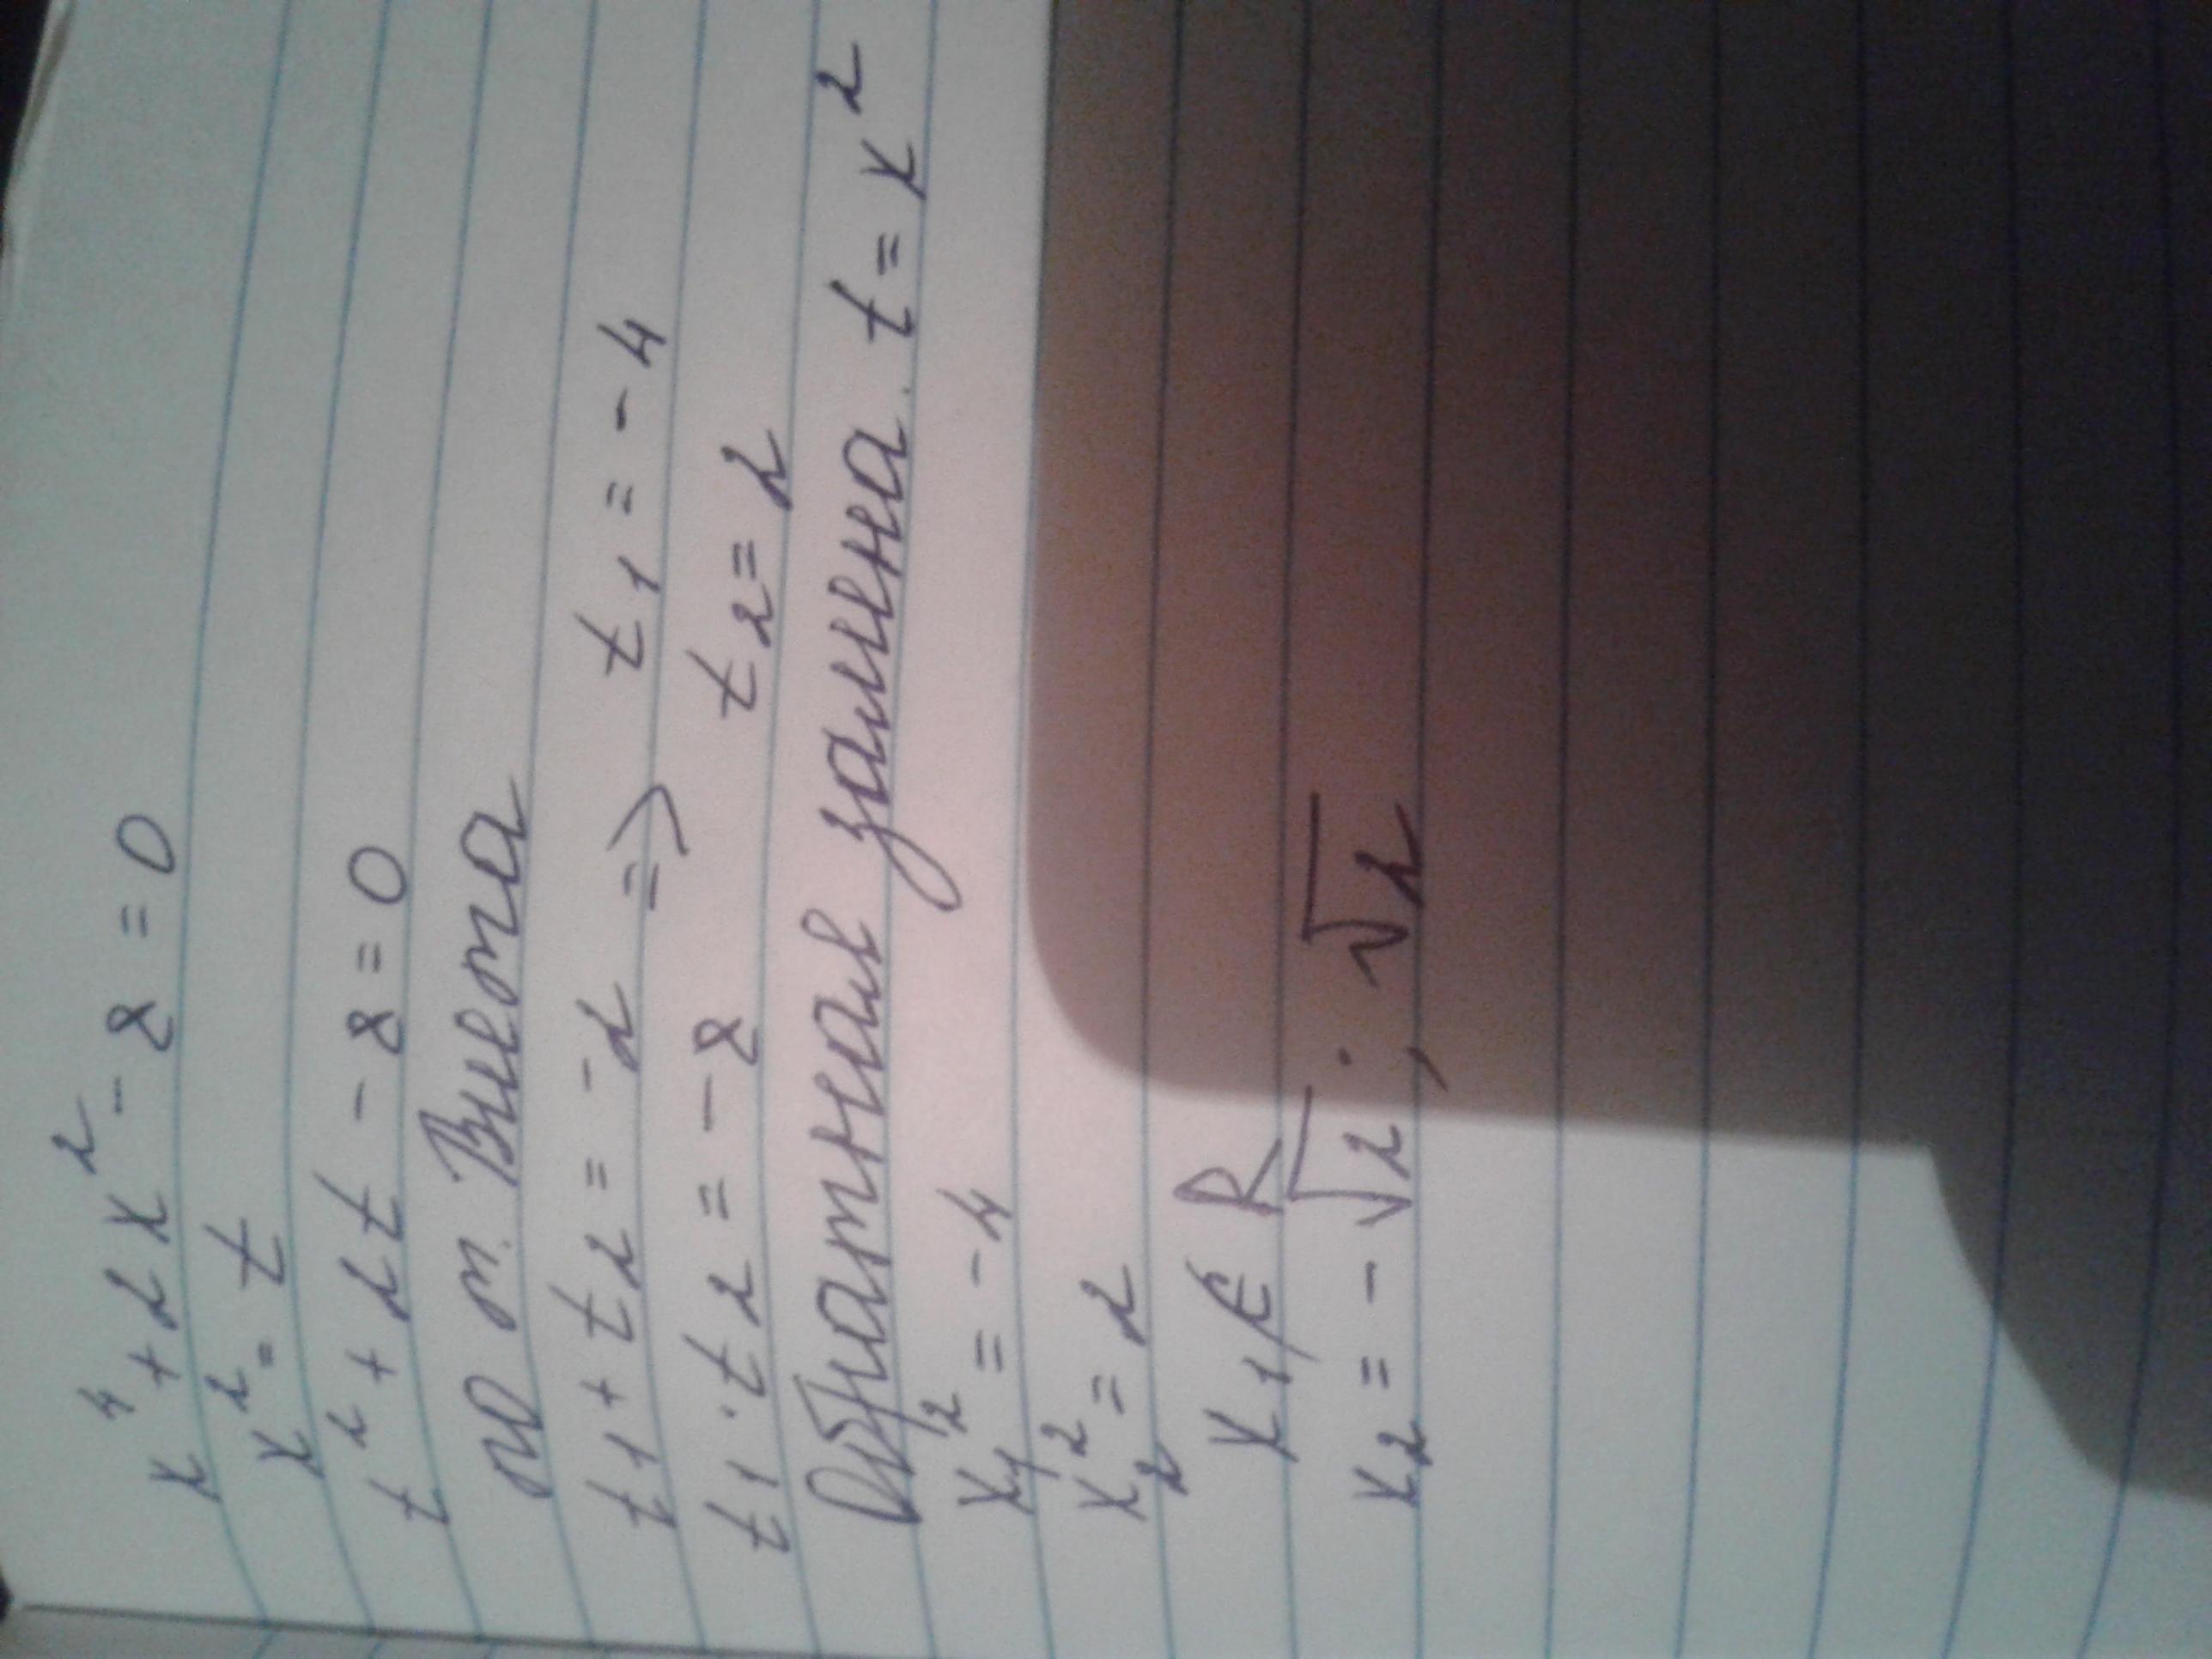 x⁴ + 2x² - 8 = 0
x² = t
t² + 2t - 8 = 0
по т. Виета
t₁ + t₂ = -2 => t₁ = -4
t₁ · t₂ = -8 t₂ = 2
Обратная замена. t = x²
x₁² = -4
x₂² = 2
x₁ ∉ R
x₂ = -√2; √2